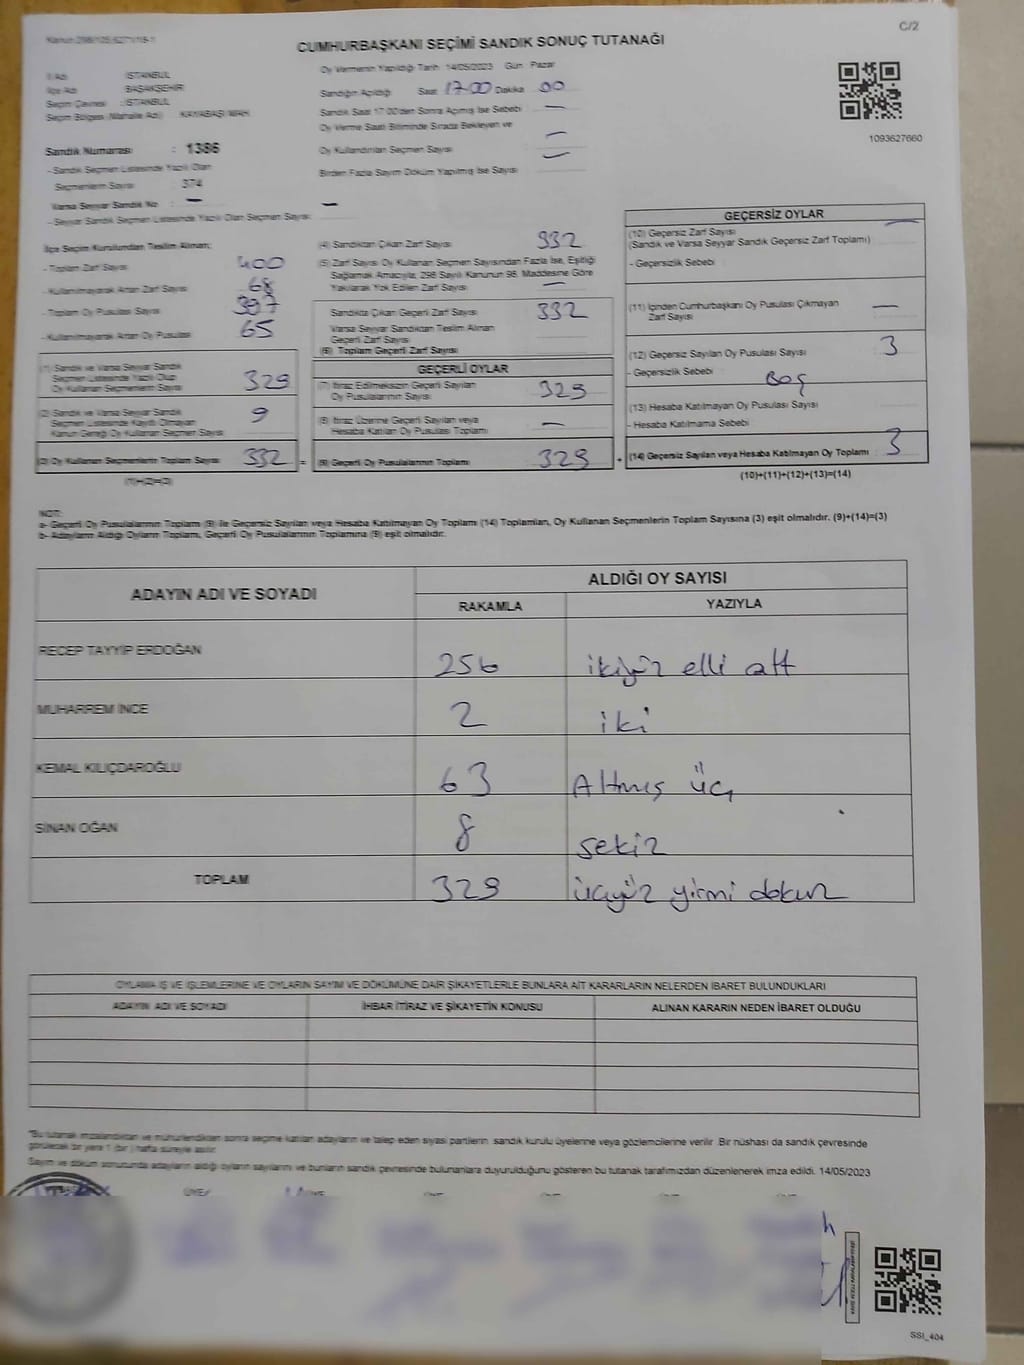 Kanun:298/105,6271/18-1
C/2
CUMHURBAŞKANI SEÇİMİ SANDIK SONUÇ TUTANAĞI
İl Adı : İSTANBUL
İlçe Adı : BAŞAKŞEHİR
Seçim Çevresi : İSTANBUL
Seçim Bölgesi (Mahalle Adı) : KAYABAŞI MAH.
Oy Vermenin Yapıldığı Tarih: 14/05/2023 Gün: Pazar
Sandığın Açıldığı Saat 17.00 Dakika 00
Sandık Saat 17:00'den Sonra Açılmış İse Sebebi —
Oy Verme Saati Bitiminde Sırada Bekleyen ve
Oy Kullandırılan Seçmen Sayısı —
Birden Fazla Sayım Döküm Yapılmış İse Sayısı —
1093627660
Sandık Numarası : 1386
- Sandık Seçmen Listesinde Yazılı Olan
Seçmenlerin Sayısı : 374
Varsa Seyyar Sandık No : —
- Seyyar Sandık Seçmen Listesinde Yazılı Olan Seçmen Sayısı: —
İlçe Seçim Kurulundan Teslim Alınan;
- Toplam Zarf Sayısı 400
- Kullanılmayarak Artan Zarf Sayısı 68
- Toplam Oy Pusulası Sayısı 397
- Kullanılmayarak Artan Oy Pusulası 65
(1) Sandık ve Varsa Seyyar Sandık
Seçmen Listesinde Yazılı Olup
Oy Kullanan Seçmenlerin Sayısı 329
(2) Sandık ve Varsa Seyyar Sandık
Seçmen Listesinde Kayıtlı Olmayan
Kanun Gereği Oy Kullanan Seçmen Sayısı 9
(3) Oy Kullanan Seçmenlerin Toplam Sayısı 332 =
(1)+(2)=(3)
(4) Sandıktan Çıkan Zarf Sayısı 332
(5) Zarf Sayısı Oy Kullanan Seçmen Sayısından Fazla İse, Eşitliği
Sağlamak Amacıyla, 298 Sayılı Kanunun 98. Maddesine Göre
Yakılarak Yok Edilen Zarf Sayısı —
Sandıkta Çıkan Geçerli Zarf Sayısı 332
Varsa Seyyar Sandıktan Teslim Alınan
Geçerli Zarf Sayısı
(6) Toplam Geçerli Zarf Sayısı
GEÇERLİ OYLAR
(7) İtiraz Edilmeksizin Geçerli Sayılan
Oy Pusulalarının Sayısı 329
(8) İtiraz Üzerine Geçerli Sayılan veya
Hesaba Katılan Oy Pusulası Toplamı —
(9) Geçerli Oy Pusulalarının Toplamı 329 +
GEÇERSİZ OYLAR
(10) Geçersiz Zarf Sayısı —
(Sandık ve Varsa Seyyar Sandık Geçersiz Zarf Toplamı)
- Geçersizlik Sebebi
(11) İçinden Cumhurbaşkanı Oy Pusulası Çıkmayan
Zarf Sayısı —
(12) Geçersiz Sayılan Oy Pusulası Sayısı 3
- Geçersizlik Sebebi Boş
(13) Hesaba Katılmayan Oy Pusulası Sayısı
- Hesaba Katılmama Sebebi
(14) Geçersiz Sayılan veya Hesaba Katılmayan Oy Toplamı : 3
(10)+(11)+(12)+(13)=(14)
NOT:
a- Geçerli Oy Pusulalarının Toplamı (9) ile Geçersiz Sayılan veya Hesaba Katılmayan Oy Toplamı (14) Toplamları, Oy Kullanan Seçmenlerin Toplam Sayısına (3) eşit olmalıdır. (9)+(14)=(3)
b- Adayların Aldığı Oyların Toplamı, Geçerli Oy Pusulalarının Toplamına (9) eşit olmalıdır.
ADAYIN ADI VE SOYADI ALDIĞI OY SAYISI
RAKAMLA YAZIYLA
RECEP TAYYİP ERDOĞAN 256 ikiyüz elli altı
MUHARREM İNCE 2 iki
KEMAL KILIÇDAROĞLU 63 Altmış üç
SİNAN OĞAN 8 sekiz
TOPLAM 329 üçyüz yirmi dokuz
OYLAMA İŞ VE İŞLEMLERİNE VE OYLARIN SAYIM VE DÖKÜMÜNE DAİR ŞİKAYETLERLE BUNLARA AİT KARARLARIN NELERDEN İBARET BULUNDUKLARI
ADAYIN ADI VE SOYADI İHBAR İTİRAZ VE ŞİKAYETİN KONUSU ALINAN KARARIN NEDEN İBARET OLDUĞU
*Bu tutanak imzalandıktan ve mühürlendikten sonra seçime katılan adayların ve talep eden siyasi partilerin sandık kurulu üyelerine veya gözlemcilerine verilir. Bir nüshası da sandık çevresinde
görülecek bir yere 1 (bir) hafta süreyle asılır.
Sayım ve döküm sonucunda adayların aldığı oyların sayılarını ve bunların sandık çevresinde bulunanlara duyurulduğunu gösteren bu tutanak tarafımızdan düzenlenerek imza edildi. 14/05/2023
SSI_404